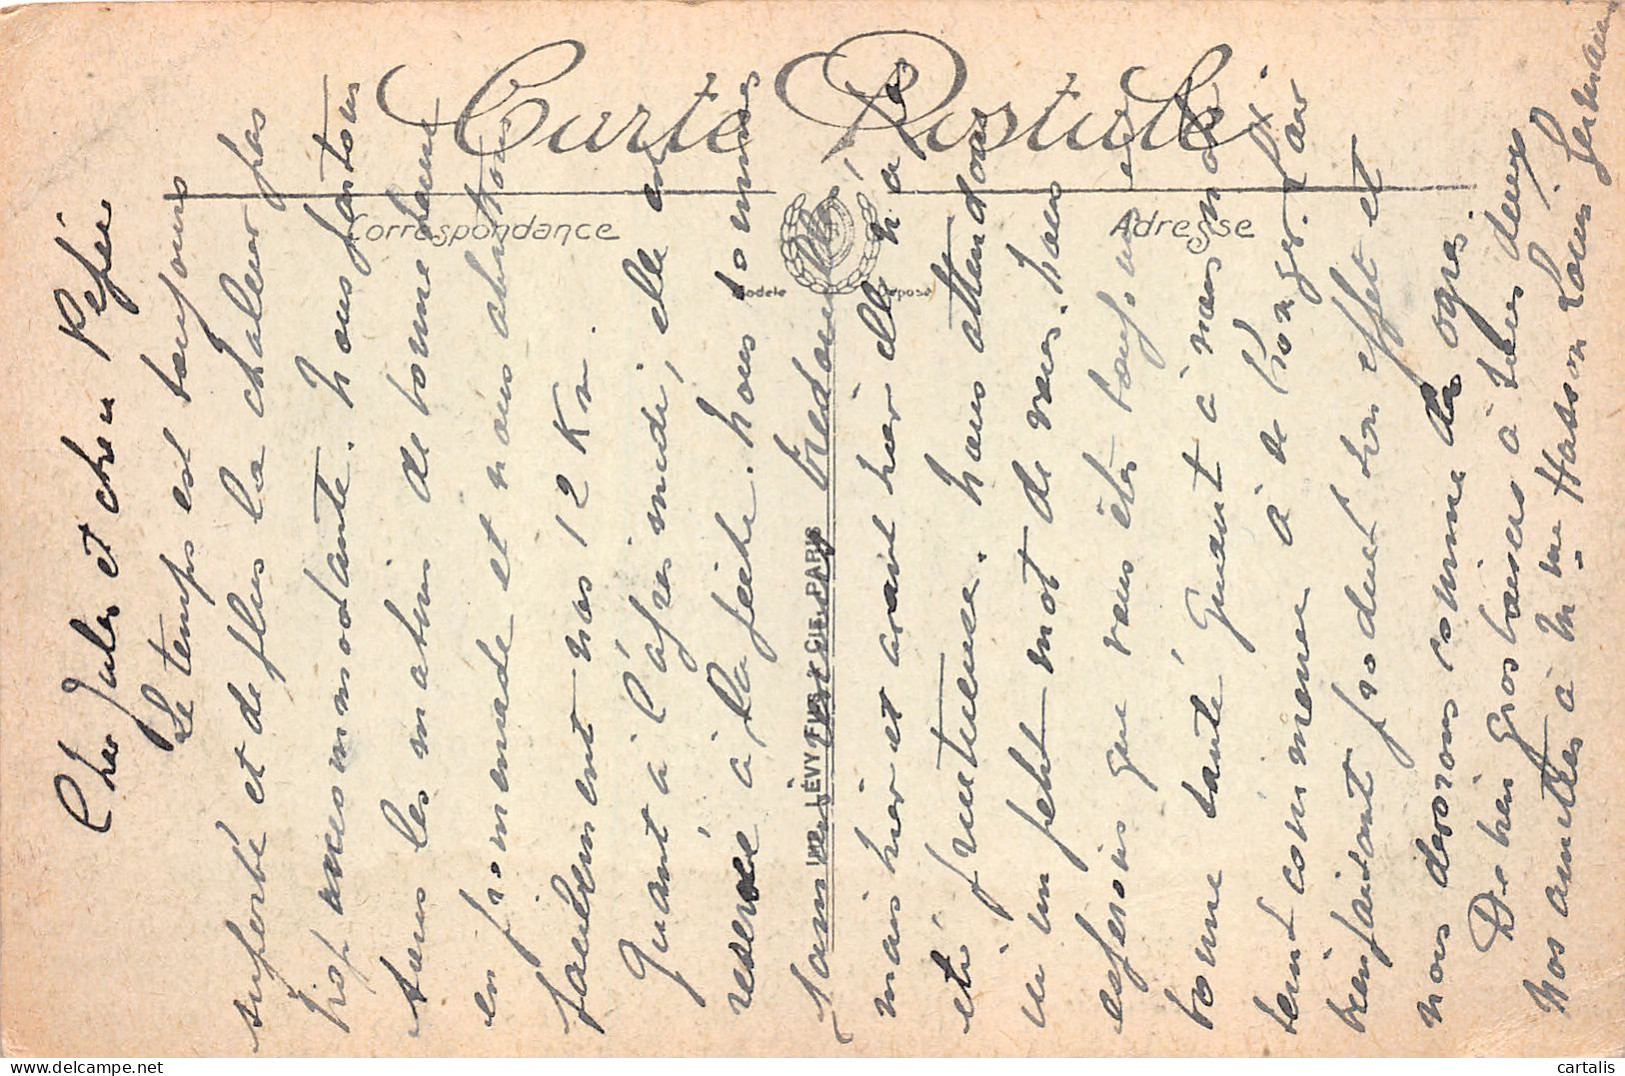 Carte Postale
Correspondance
Adresse
Modèle Déposé
IMP. LÉVY FILS & CIE. PARIS
Cher Jules et cher Pépée
Le temps est toujours
superbe et de plus la chaleur pas
trop incommodante. Nous partons
tous les matins de bonne heure
en promenade et nous abattons
facilement nos 12 Km.
Quant à l'après midi, elle est
réservé à la pêche. Nous sommes
bredouille
mais hier et avant hier elle n'a
été fructueuse. Nous attendons
un petit mot de vous. Nous
espérons que vous êtes toujours en
bonne santé. Quant à nous nous
tout commencer à se ronger. L'air
bienfaisant produit son effet et
nous dévorons comme des ogres.
De bien gros baisers à tous deux
Nos amitiés à Mme Hasson Louis Germaine
cartalis